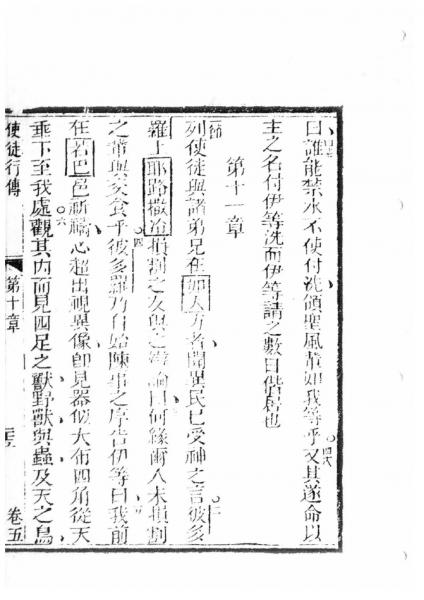 曰誰能禁水不使付洗領聖風輩如我等乎又其遂命以
主之名付伊等洗而伊等請之數日偕居也
第十一章
列使徒與諸弟兄在如大方者聞異民已受神之言彼多
羅上耶路撒冷損割之友與之辯論曰何緣爾入未損割
之輩與交食乎彼多羅乃自始陳事之序告伊等曰我前
在若巴邑祈禱心超出視異像即見器似大布四角從天
垂下至我處觀其內而見四足之獸野獸與蟲及天之鳥
使徒行傳 第十章 卷五